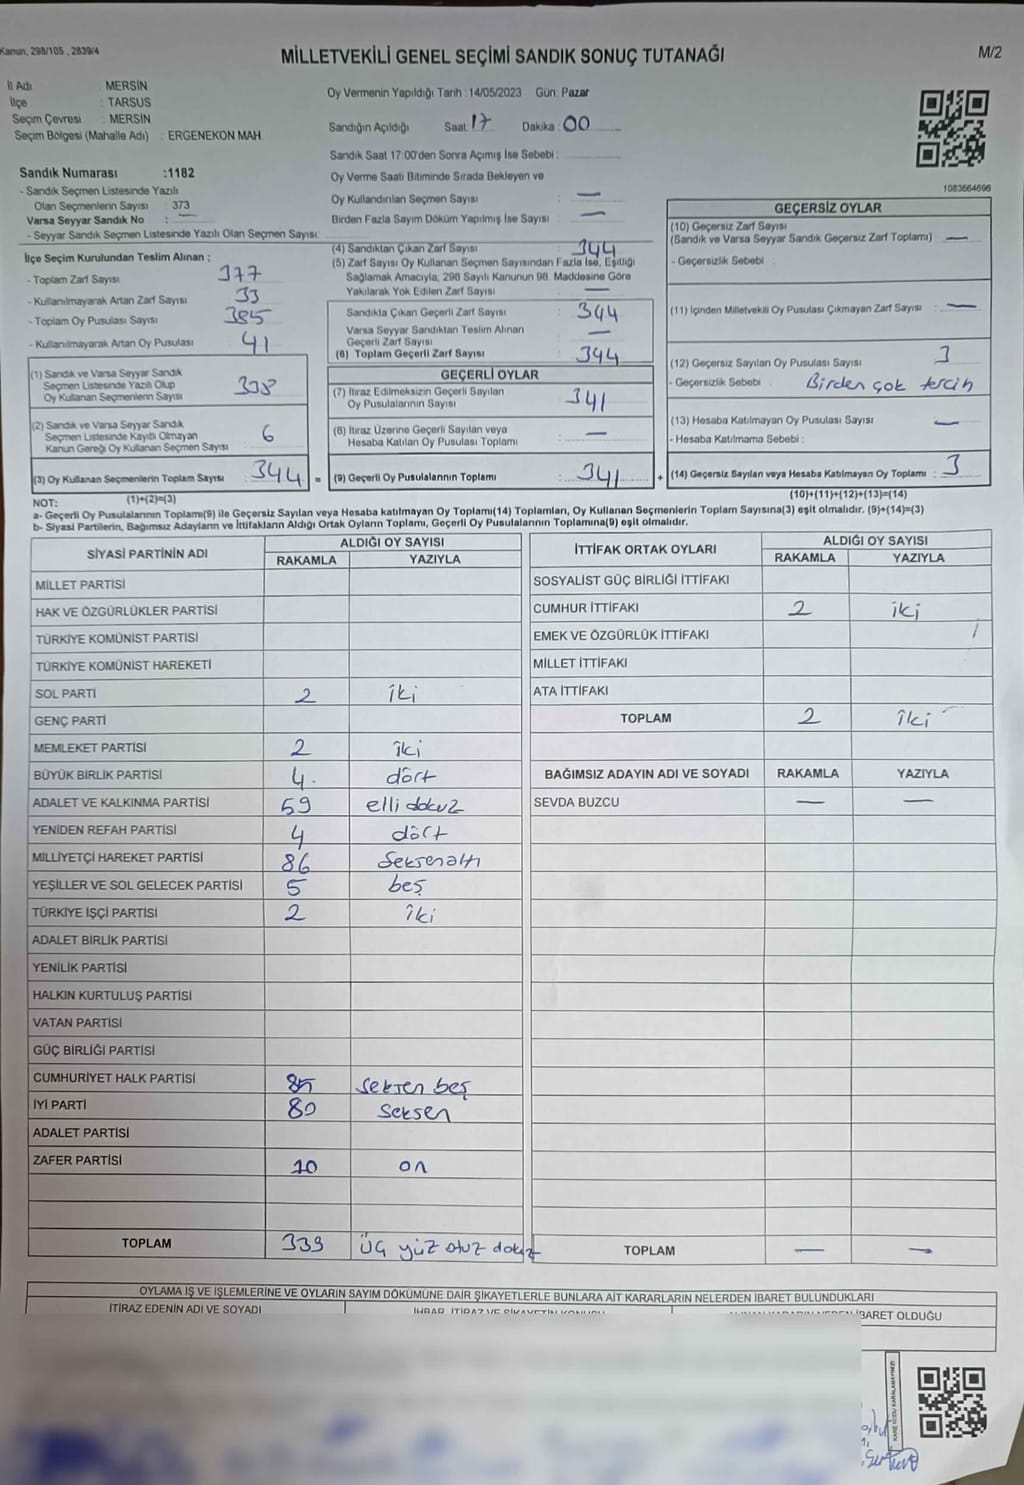 Kanun: 298/105 , 2839/4
MİLLETVEKİLİ GENEL SEÇİMİ SANDIK SONUÇ TUTANAĞI
M/2
İl Adı : MERSİN
İlçe : TARSUS
Seçim Çevresi : MERSİN
Seçim Bölgesi (Mahalle Adı) : ERGENEKON MAH.
Oy Vermenin Yapıldığı Tarih : 14/05/2023 Gün: Pazar
Sandığın Açıldığı Saat: 17 Dakika : 00
Sandık Saat 17:00'den Sonra Açımış İse Sebebi :
Oy Verme Saati Bitiminde Sırada Bekleyen ve
Oy Kullandırılan Seçmen Sayısı : —
Birden Fazla Sayım Döküm Yapılmış İse Sayısı : —
1083664696
Sandık Numarası :1182
- Sandık Seçmen Listesinde Yazılı
Olan Seçmenlerin Sayısı : 373
Varsa Seyyar Sandık No : —
- Seyyar Sandık Seçmen Listesinde Yazılı Olan Seçmen Sayısı:
İlçe Seçim Kurulundan Teslim Alınan :
- Toplam Zarf Sayısı 377
- Kullanılmayarak Artan Zarf Sayısı 33
- Toplam Oy Pusulası Sayısı 385
- Kullanılmayarak Artan Oy Pusulası 41
(1) Sandık ve Varsa Seyyar Sandık
Seçmen Listesinde Yazılı Olup
Oy Kullanan Seçmenlerin Sayısı 338
(2) Sandık ve Varsa Seyyar Sandık
Seçmen Listesinde Kayıtlı Olmayan
Kanun Gereği Oy Kullanan Seçmen Sayısı 6
(3) Oy Kullanan Seçmenlerin Toplam Sayısı : 344 =
(4) Sandıktan Çıkan Zarf Sayısı : 344
(5) Zarf Sayısı Oy Kullanan Seçmen Sayısından Fazla İse, Eşitliği
Sağlamak Amacıyla, 298 Sayılı Kanunun 98. Maddesine Göre
Yakılarak Yok Edilen Zarf Sayısı : —
Sandıkta Çıkan Geçerli Zarf Sayısı : 344
Varsa Seyyar Sandıktan Teslim Alınan
Geçerli Zarf Sayısı : —
(6) Toplam Geçerli Zarf Sayısı : 344
GEÇERLİ OYLAR
(7) İtiraz Edilmeksizin Geçerli Sayılan
Oy Pusulalarının Sayısı 341
(8) İtiraz Üzerine Geçerli Sayılan veya
Hesaba Katılan Oy Pusulası Toplamı : —
(9) Geçerli Oy Pusulalarının Toplamı : 341 +
GEÇERSİZ OYLAR
(10) Geçersiz Zarf Sayısı
(Sandık ve Varsa Seyyar Sandık Geçersiz Zarf Toplamı) : —
- Geçersizlik Sebebi :
(11) İçinden Milletvekili Oy Pusulası Çıkmayan Zarf Sayısı : —
(12) Geçersiz Sayılan Oy Pusulası Sayısı : 3
- Geçersizlik Sebebi : Birden çok tercih
(13) Hesaba Katılmayan Oy Pusulası Sayısı : —
- Hesaba Katılmama Sebebi :
(14) Geçersiz Sayılan veya Hesaba Katılmayan Oy Toplamı : 3
NOT: (1)+(2)=(3)
(10)+(11)+(12)+(13)=(14)
a- Geçerli Oy Pusulalarının Toplamı(9) ile Geçersiz Sayılan veya Hesaba katılmayan Oy Toplamı(14) Toplamları, Oy Kullanan Seçmenlerin Toplam Sayısına(3) eşit olmalıdır. (9)+(14)=(3)
b- Siyasi Partilerin, Bağımsız Adayların ve İttifakların Aldığı Ortak Oyların Toplamı, Geçerli Oy Pusulalarının Toplamına(9) eşit olmalıdır.
SİYASİ PARTİNİN ADI ALDIĞI OY SAYISI
RAKAMLA YAZIYLA
MİLLET PARTİSİ
HAK VE ÖZGÜRLÜKLER PARTİSİ
TÜRKİYE KOMÜNİST PARTİSİ
TÜRKİYE KOMÜNİST HAREKETİ
SOL PARTİ 2 iki
GENÇ PARTİ
MEMLEKET PARTİSİ 2 iki
BÜYÜK BİRLİK PARTİSİ 4. dört
ADALET VE KALKINMA PARTİSİ 59 elli dokuz
YENİDEN REFAH PARTİSİ 4 dört
MİLLİYETÇİ HAREKET PARTİSİ 86 Seksenaltı
YEŞİLLER VE SOL GELECEK PARTİSİ 5 beş
TÜRKİYE İŞÇİ PARTİSİ 2 iki
ADALET BİRLİK PARTİSİ
YENİLİK PARTİSİ
HALKIN KURTULUŞ PARTİSİ
VATAN PARTİSİ
GÜÇ BİRLİĞİ PARTİSİ
CUMHURİYET HALK PARTİSİ 85 seksen beş
İYİ PARTİ 80 Seksen
ADALET PARTİSİ
ZAFER PARTİSİ 10 on
TOPLAM 339 üç yüz otuz dokuz
İTTİFAK ORTAK OYLARI ALDIĞI OY SAYISI
RAKAMLA YAZIYLA
SOSYALİST GÜÇ BİRLİĞİ İTTİFAKI
CUMHUR İTTİFAKI 2 iki
EMEK VE ÖZGÜRLÜK İTTİFAKI
MİLLET İTTİFAKI
ATA İTTİFAKI
TOPLAM 2 iki
BAĞIMSIZ ADAYIN ADI VE SOYADI RAKAMLA YAZIYLA
SEVDA BUZCU — —
TOPLAM — —
OYLAMA İŞ VE İŞLEMLERİNE VE OYLARIN SAYIM DÖKÜMÜNE DAİR ŞİKAYETLERLE BUNLARA AİT KARARLARIN NELERDEN İBARET BULUNDUKLARI
İTİRAZ EDENİN ADI VE SOYADI
İHBAR, İTİRAZ VE ŞİKAYETİN KONUSU
İBARET OLDUĞU